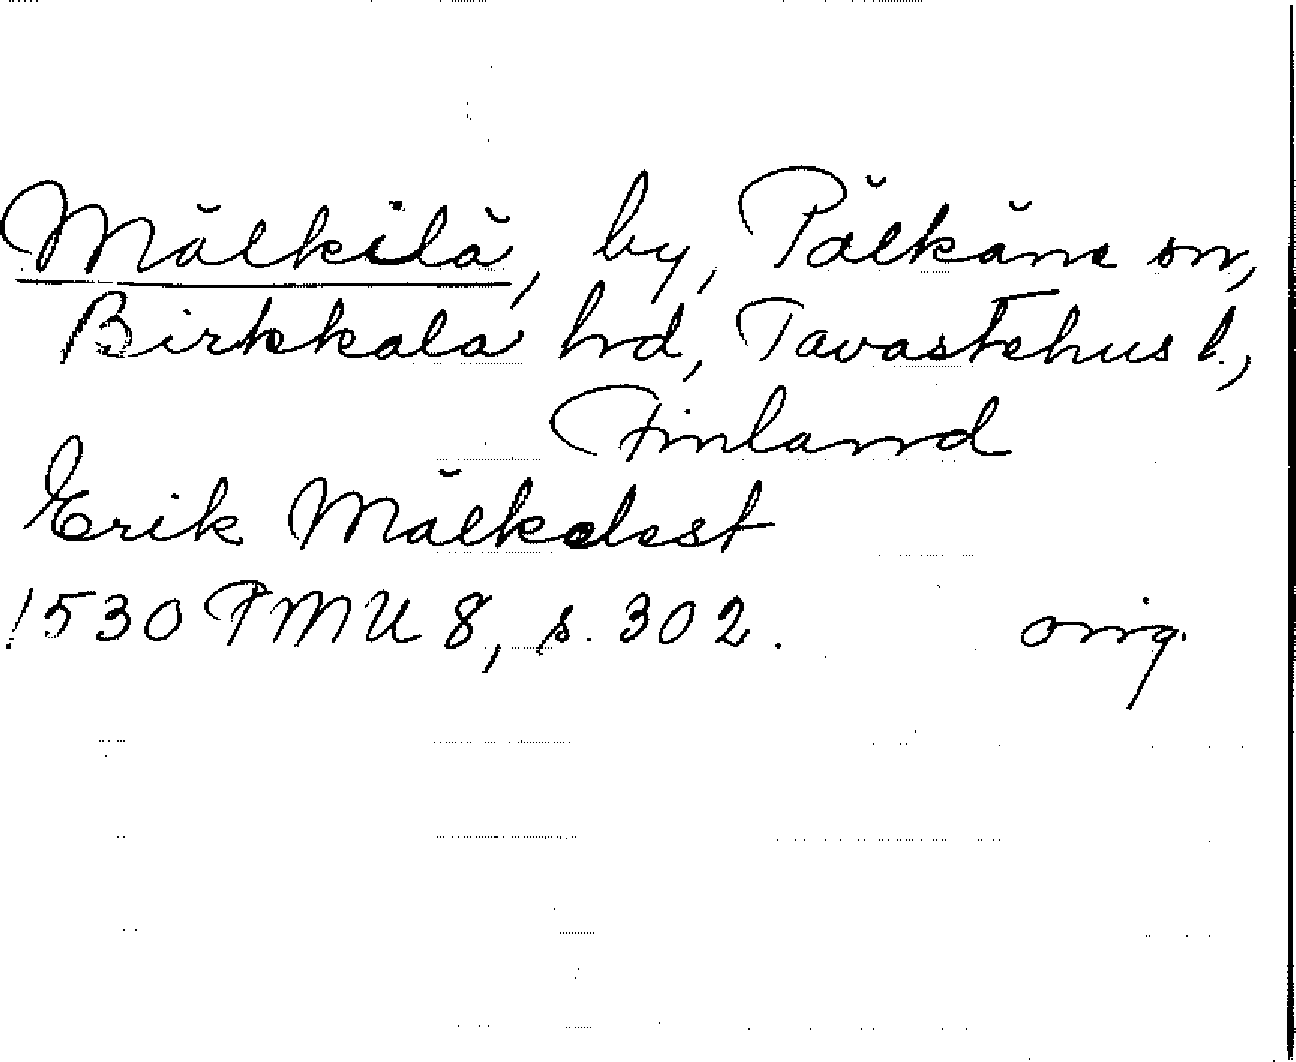 Mälkilä, by, Pälkäne sn,
Birkkala hrd, Tavastehus l.,
Finland
Erik Mälkelest
1530 FMU 8, s. 302. orig.